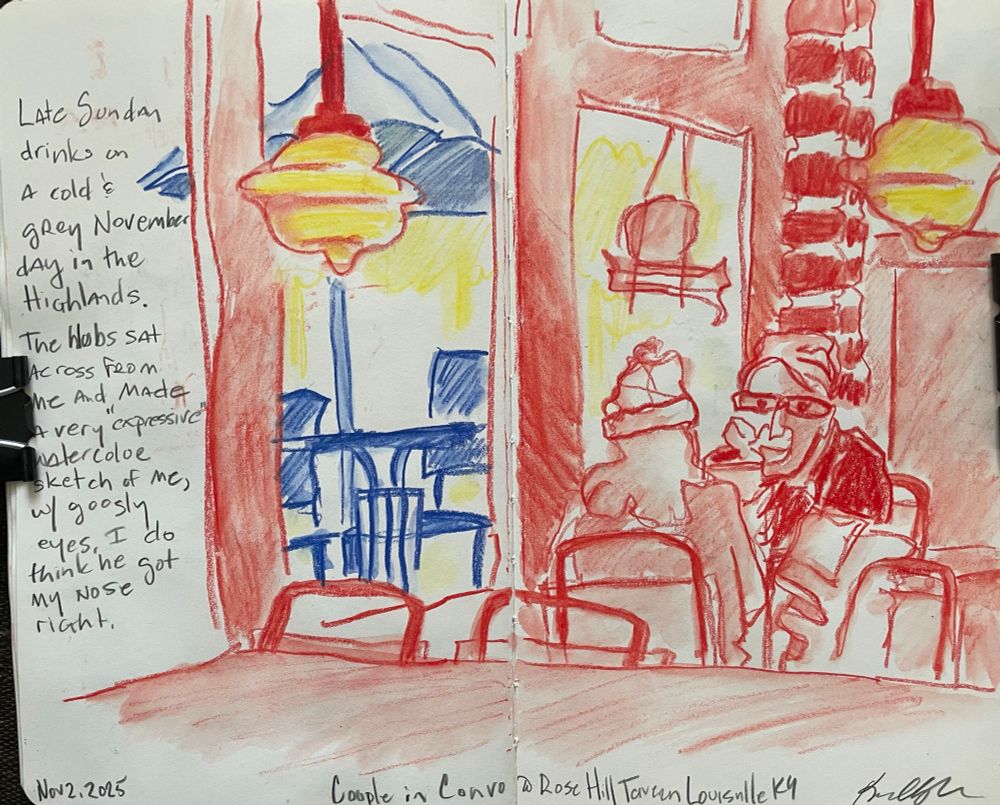 Late Sunday
drinks on
A cold &
grey November
day in the
Highlands.
The hubs sat
Across from
me And made
A very "expressive"
watercolor
sketch of me,
w/ goosly
eyes. I do
think he got
my nose
right.
Nov 2. 2025
Couple in Convo @ Rose Hill Tavern Louisville KY